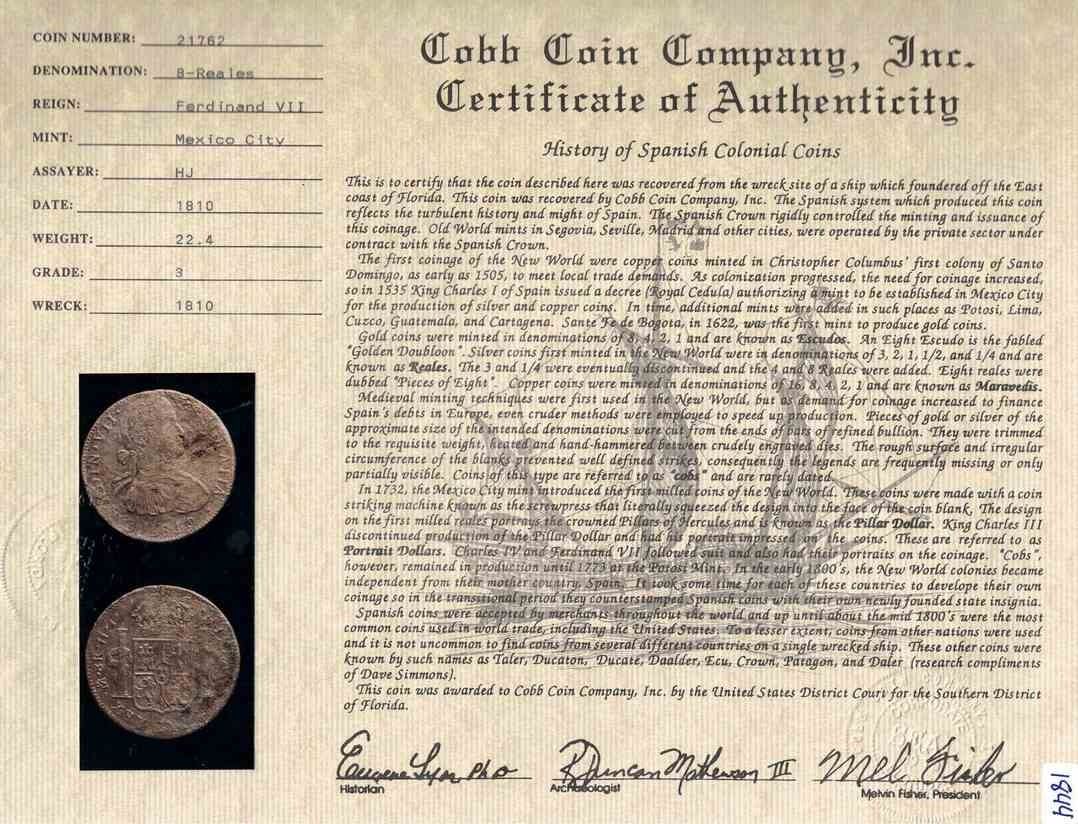 COIN NUMBER: 21762
DENOMINATION: 8-Reales
REIGN: Ferdinand VII
MINT: Mexico City
ASSAYER: HJ
DATE: 1810
WEIGHT: 22.4
GRADE: 3
WRECK: 1810
Cobb Coin Company, Inc.
Certificate of Authenticity
History of Spanish Colonial Coins
This is to certify that the coin described here was recovered from the wreck site of a ship which foundered off the East
coast of Florida. This coin was recovered by Cobb Coin Company, Inc. The Spanish system which produced this coin
reflects the turbulent history and might of Spain. The Spanish Crown rigidly controlled the minting and issuance of
this coinage. Old World mints in Segovia, Seville, Madrid and other cities, were operated by the private sector under
contract with the Spanish Crown.
The first coinage of the New World were copper coins minted in Christopher Columbus' first colony of Santo
Domingo, as early as 1505, to meet local trade demands. As colonization progressed, the need for coinage increased,
so in 1535 King Charles I of Spain issued a decree (Royal Cedula) authorizing a mint to be established in Mexico City
for the production of silver and copper coins. In time, additional mints were added in such places as Potosi, Lima,
Cuzco, Guatemala, and Cartagena. Sante Fe de Bogota, in 1622, was the first mint to produce gold coins.
Gold coins were minted in denominations of 8, 4, 2, 1 and are known as Escudos. An Eight Escudo is the fabled
"Golden Doubloon". Silver coins first minted in the New World were in denominations of 3, 2, 1, 1/2, and 1/4 and are
known as Reales. The 3 and 1/4 were eventually discontinued and the 4 and 8 Reales were added. Eight reales were
dubbed "Pieces of Eight". Copper coins were minted in denominations of 16, 2, 1 and are known as Maravedis.
Medieval minting techniques were first used in the New World, but as demand for coinage increased to finance
Spain's debts in Europe, even cruder methods were employed to speed up production. Pieces of gold or silver of the
approximate size of the intended denominations were cut from the ends of bars of refined bullion. They were trimmed
to the requisite weight, heated and hand-hammered between crudely engraved dies. The rough surface and irregular
circumference of the blanks prevented well defined strikes, consequently the legends are frequently missing or only
partially visible. Coins of this type are referred to as "cobs" and are rarely dated.
In 1732, the Mexico City mint introduced the first milled coins of the New World. These coins were made with a coin
striking machine known as the screwpress that literally squeezed the design into the face of the coin blank. The design
on the first milled reales portrays the crowned Pillars of Hercules and is known as the Pillar Dollar. King Charles III
discontinued production of the Pillar Dollar and had his portrait impressed on the coins. These are referred to as
Portrait Dollars. Charles IV and Ferdinand VII followed suit and also had their portraits on the coinage. "Cobs",
however, remained in production until 1773 at the Potosi Mint. In the early 1800's, the New World colonies became
independent from their mother country, Spain. It took some time for each of these countries to develope their own
coinage so in the transitional period they counterstamped Spanish coins with their own newly founded state insignia.
Spanish coins were accepted by merchants throughout the world and up until about the mid 1800's were the most
common coins used in world trade, including the United States. To a lesser extent, coins from other nations were used
and it is not uncommon to find coins from several different countries on a single wrecked ship. These other coins were
known by such names as Taler, Ducaton, Ducate, Daalder, Ecu, Crown, Patagon, and Daler (research compliments
of Dave Simmons).
This coin was awarded to Cobb Coin Company, Inc. by the United States District Court for the Southern District
of Florida.
Eugene Lyon PhD
R Duncan Mathewson III
Mel Fisher
Historian
Archaeologist
Melvin Fisher, President
1844